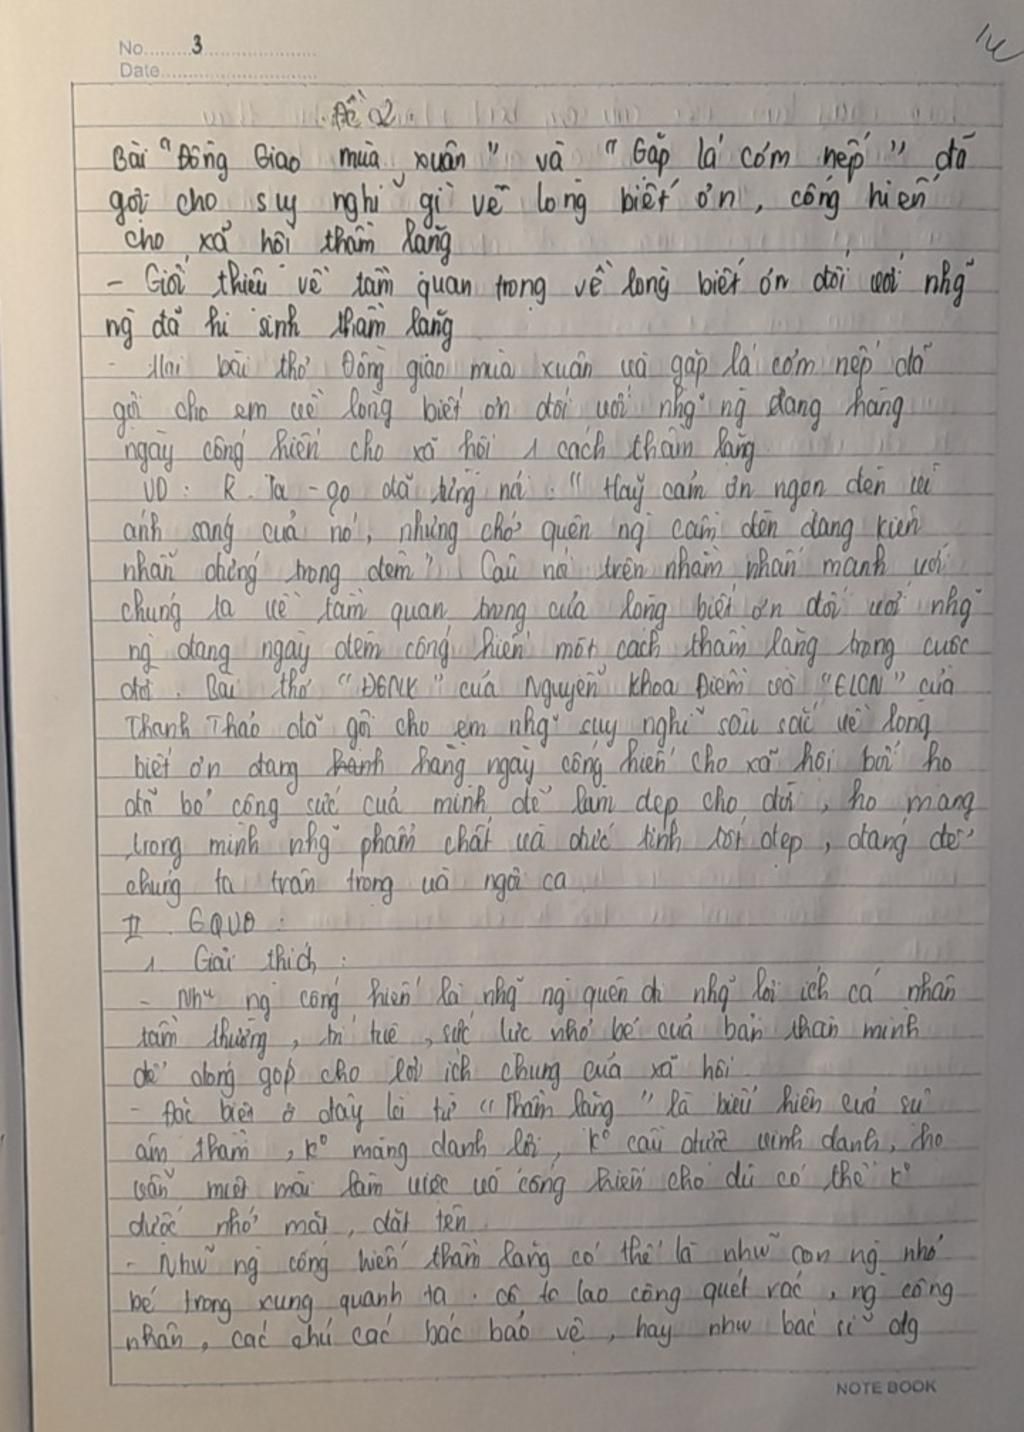 No 3
Date
Đề 02
Bài "Đồng Giao mùa xuân" và "Gặp lá cơm nếp" đã
gợi cho suy nghĩ gì về lòng biết ơn, cống hiến
cho xã hội thầm lặng
- Giới thiệu về tầm quan trọng về lòng biết ơn đối với nhg~
ng` đã hi sinh thầm lặng
- Hai bài thơ Đồng giao mùa xuân và gặp lá cơm nếp đã
gợi cho em về lòng biết ơn đối với nhg~ ng` đang hằng
ngày cống hiến cho xã hội 1 cách thầm lặng
VD: R. Ta-go đã từng nói: "Hãy cảm ơn ngọn đèn vì
ánh sáng của nó, nhưng chớ quên ng` cầm đèn đang kiên
nhẫn đứng trong đêm". Câu nói trên nhằm nhấn mạnh với
chúng ta về tầm quan trọng của lòng biết ơn đối với nhg~
ng` đang ngày đêm cống hiến một cách thầm lặng trong cuộc
đời. Bài thơ "ĐGNK" của Nguyễn Khoa Điềm và "GLCN" của
Thanh Thảo đã gợi cho em nhg~ suy nghĩ sâu sắc về lòng
biết ơn đang hành hằng ngày cống hiến cho xã hội bởi họ
đã bỏ công sức của mình để làm đẹp cho đời, họ mang
trong mình nhg~ phẩm chất và đức tính tốt đẹp, đáng để
chúng ta trân trọng và ngợi ca
II. GQVĐ:
1. Giải thích:
- Như ng` cống hiến là nhg~ ng` quên đi nhg~ lợi ích cá nhân
tầm thường, trí tuệ, sức lực nhỏ bé của bản thân mình
để đóng góp cho lợi ích chung của xã hội
- Đặc biệt ở đây là từ "Thầm lặng" là biểu hiện của sự
âm thầm, k° màng danh lợi, k° cầu được vinh danh, họ
vẫn miệt mài làm việc và cống hiến cho dù có thể k°
được nhớ mặt, đặt tên
- Như~ ng` cống hiến thầm lặng có thể là như~ con ng` nhỏ
bé trong xung quanh ta. cô lao công quét rác, ng` công
nhân, các chú các bác bảo vệ, hay như bác sĩ đg
NOTE BOOK